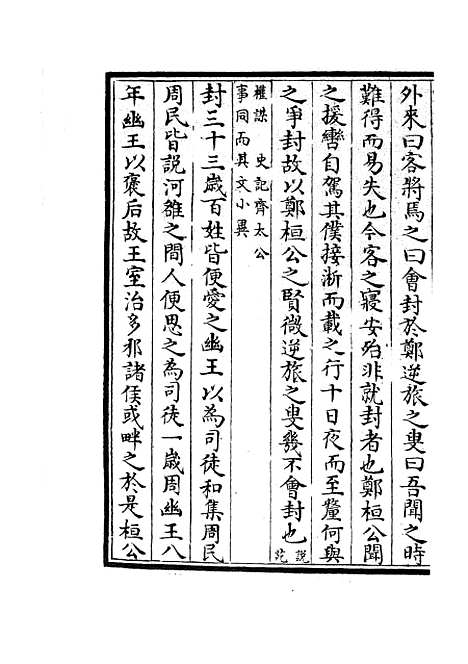 外來曰客將焉之曰會封於鄭逆旅之叟曰吾聞之時
難得而易失也今客之寝安殆非就封者也鄭桓公聞
之援轡自駕其僕接淅而載之行十日夜而至釐何與
之爭封故以鄭桓公之賢微逆旅之叟幾不會封也說苑
權謀　史記齊太公
事同而其文小異
封三十三歲百姓皆便愛之幽王以為司徒和集周民
周民皆說河雒之間人便思之為司徒一歲周幽王八
年幽王以褒后故王室治多邪諸侯或畔之於是桓公